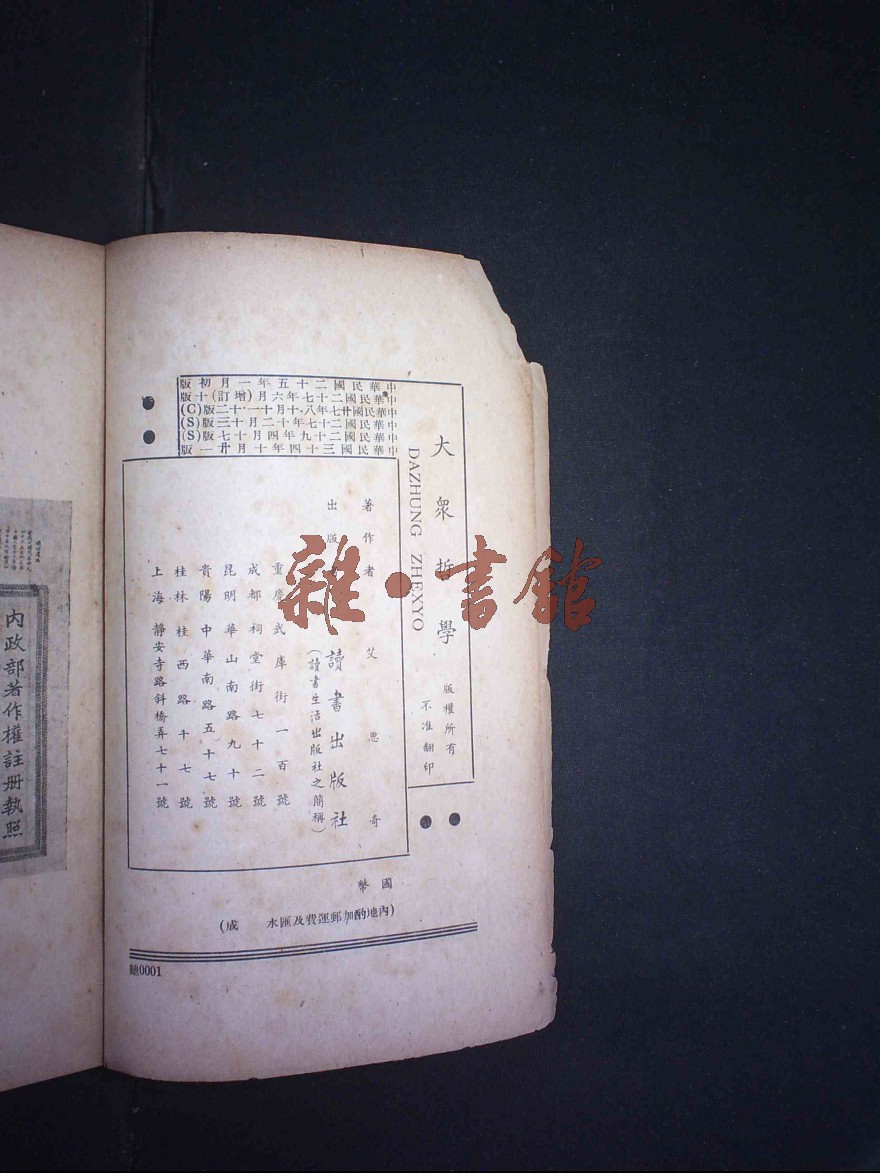 中華民國二十五年一月初版
中華民國二十七年六月(增訂)十版
中華民國廿七年八·十月十一·十二版(C)
中華民國二十七年十二月十三版(S)
中華民國二十九年四月十七版(S)
中華民國三十四年十月廿一版
大衆哲學
DAZHUNG ZHEXYO
版權所有
不准翻印
著作者 艾思奇
出版 讀書出版社
(讀書生活出版社之簡稱)
重慶武庫街一百號
成都祠堂街七十二號
昆明華山南路九十號
貴陽中華南路五十七號
桂林桂西路十七號
上海靜安寺路斜橋弄七十一號
國幣
(內地酌加郵運費及匯水 成)
總0001
內政部著作權註册執照
雜·書館